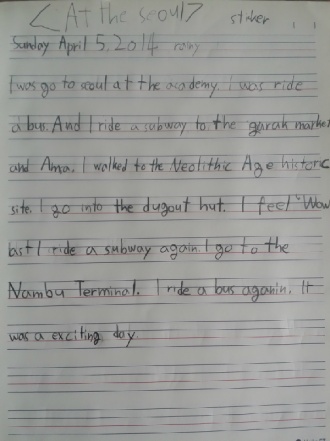 <At the seoul> stiker
Sunday April 5, 2014 rainy
I was go to seoul at the academy. I was ride
a bus. And I ride a subway to the garak market
and Amsa. I walked to the Neolithic Age historic
site. I go into the dugout hut. I feel "Wow
last I ride a subway again. I go to the
Nambu Terminal. I ride a bus aganin. It
was a exciting day